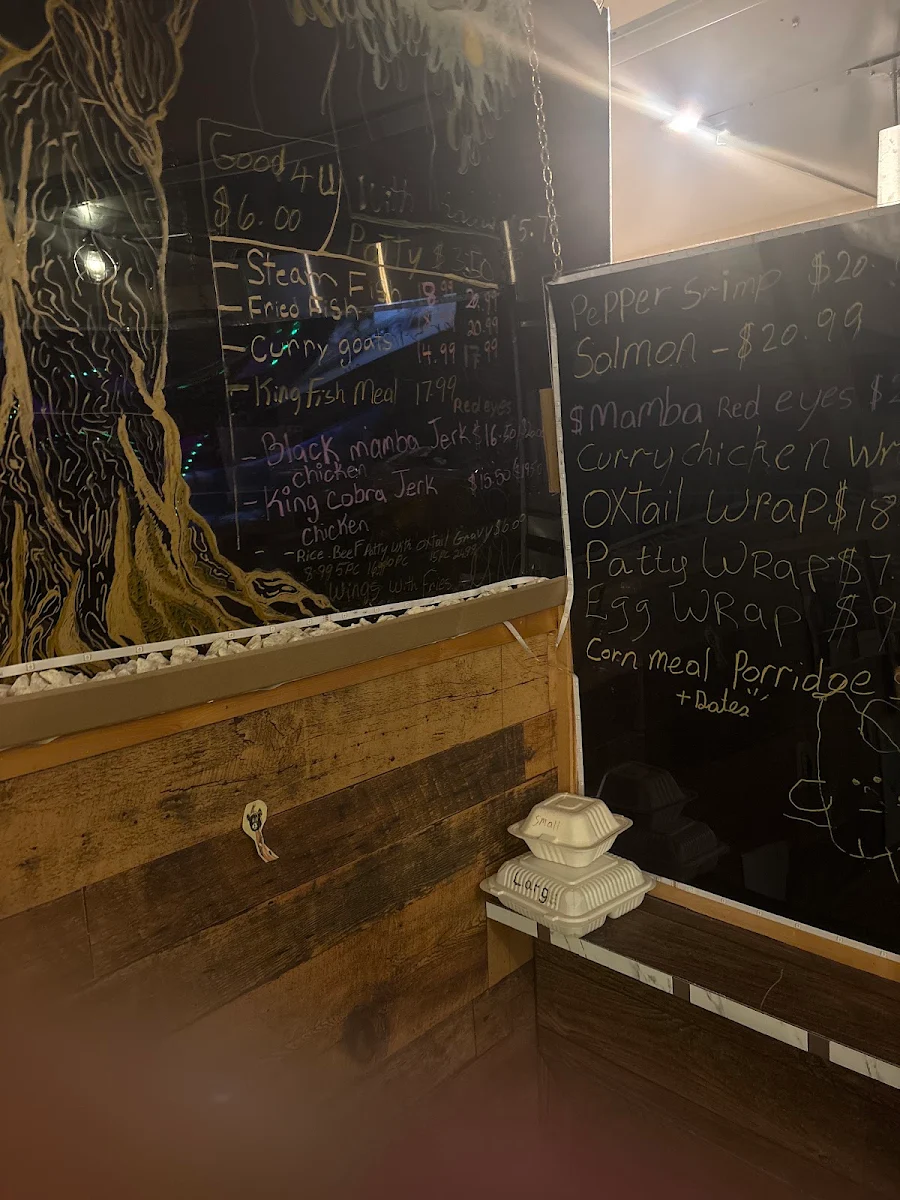 Good 4 U
$6.00
With
Patty $3.50
- Steam Fish 20.99
- Fried Fish 20.99
- Curry goats 14.99 17.99
- King Fish Meal 17.99
Red eyes
- Black mamba Jerk $16.50
chicken
- King Cobra Jerk $15.50
Chicken
- Rice-Beef Patty with oxtail Gravy $6.00
8.99 5pc
Wings with fries
Pepper Srimp $20.
Salmon - $20.99
$Mamba Red eyes $2
Curry chicken Wr
OXtail Wrap $18
Patty WRap $7.
Egg WRap $9
Corn meal Porridge
+ Dates
Small
Larg